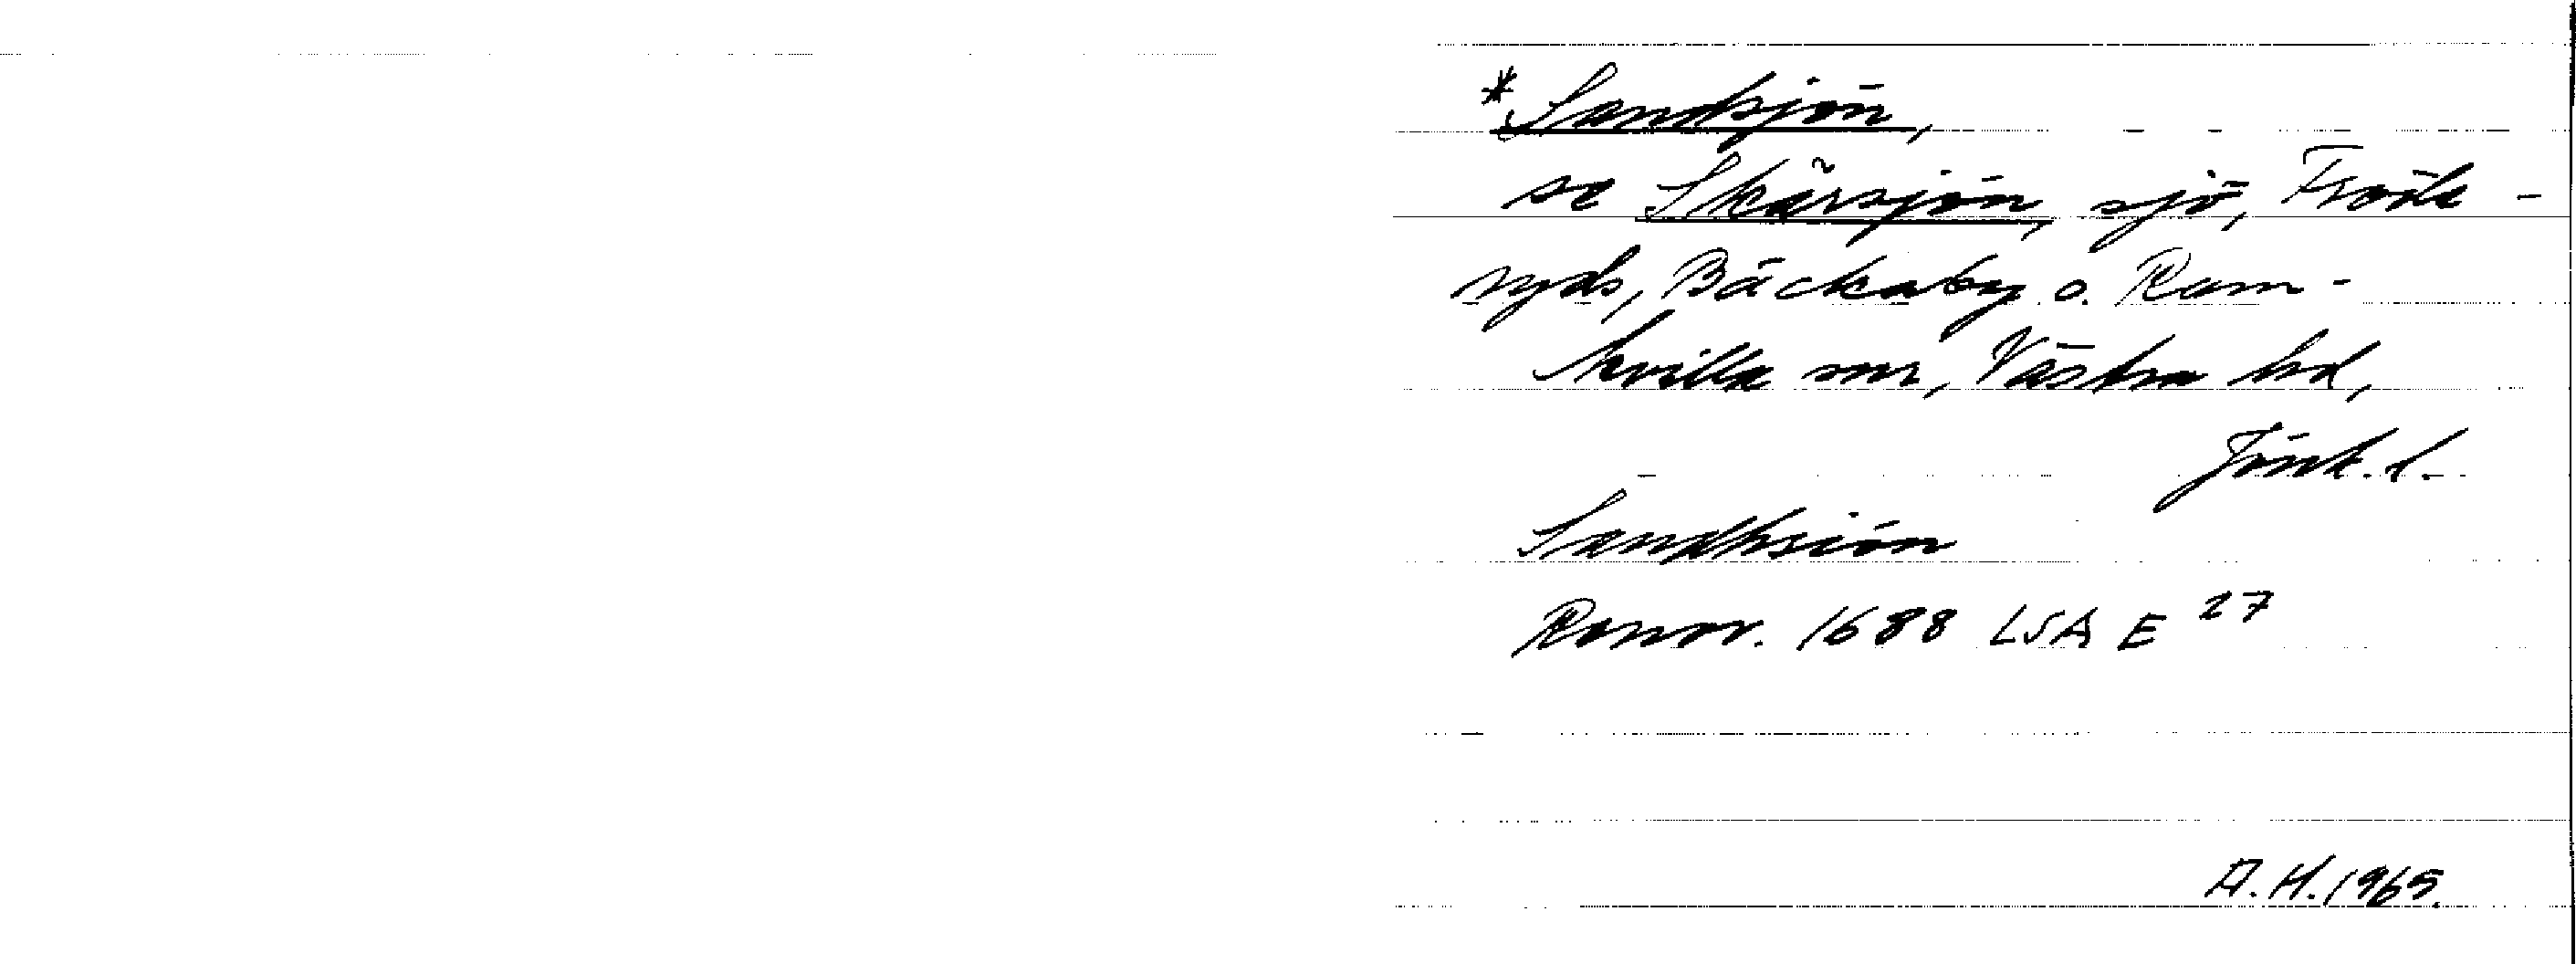 *Sandsjön,
se Skärsjön, sjö, Fröde-
ryds, Bäckaby o. Ram-
kvilla snr, Västra hd,
Jönk. l.
Sandhsiön
Rannr. 1688 LSA E 27
A.H. 1965.